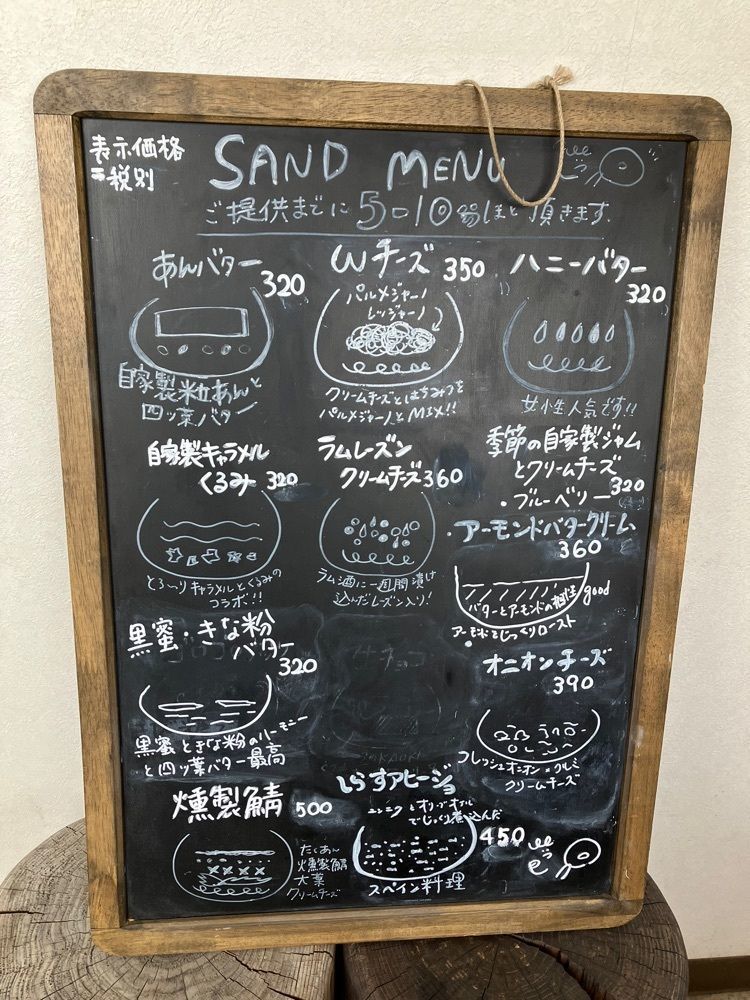 表示価格
税別
SAND MENU
ご提供までに5-10分ほど頂きます.
あんバター
320
自家製粒あんと
四ッ葉バター
Wチーズ 350
パルメジャーノ
レッジャーノ
クリームチーズとはちみつを
パルメジャーノとMIX!!
ハニーバター
320
女性人気です!!
自家製キャラメル
くるみ 320
とろ〜りキャラメルとくるみの
コラボ!!
ラムレーズン
クリームチーズ360
ラム酒に一週間漬け
込んだレーズン入り!
季節の自家製ジャム
とクリームチーズ
・ブルーベリー 320
・アーモンドバタークリーム
360
バターとアーモンドの相性
good
アーモンドをじっくりロースト
黒蜜・きな粉
バター
320
黒蜜ときな粉のハーモニー
と四ッ葉バター最高
オニオンチーズ
390
フレッシュオニオン・クルミ
クリームチーズ
燻製鯖 500
たくあん
燻製鯖
大葉
クリームチーズ
しらすアヒージョ
ニンニクとオリーブオイル
でじっくり煮込んだ
450
スペイン料理